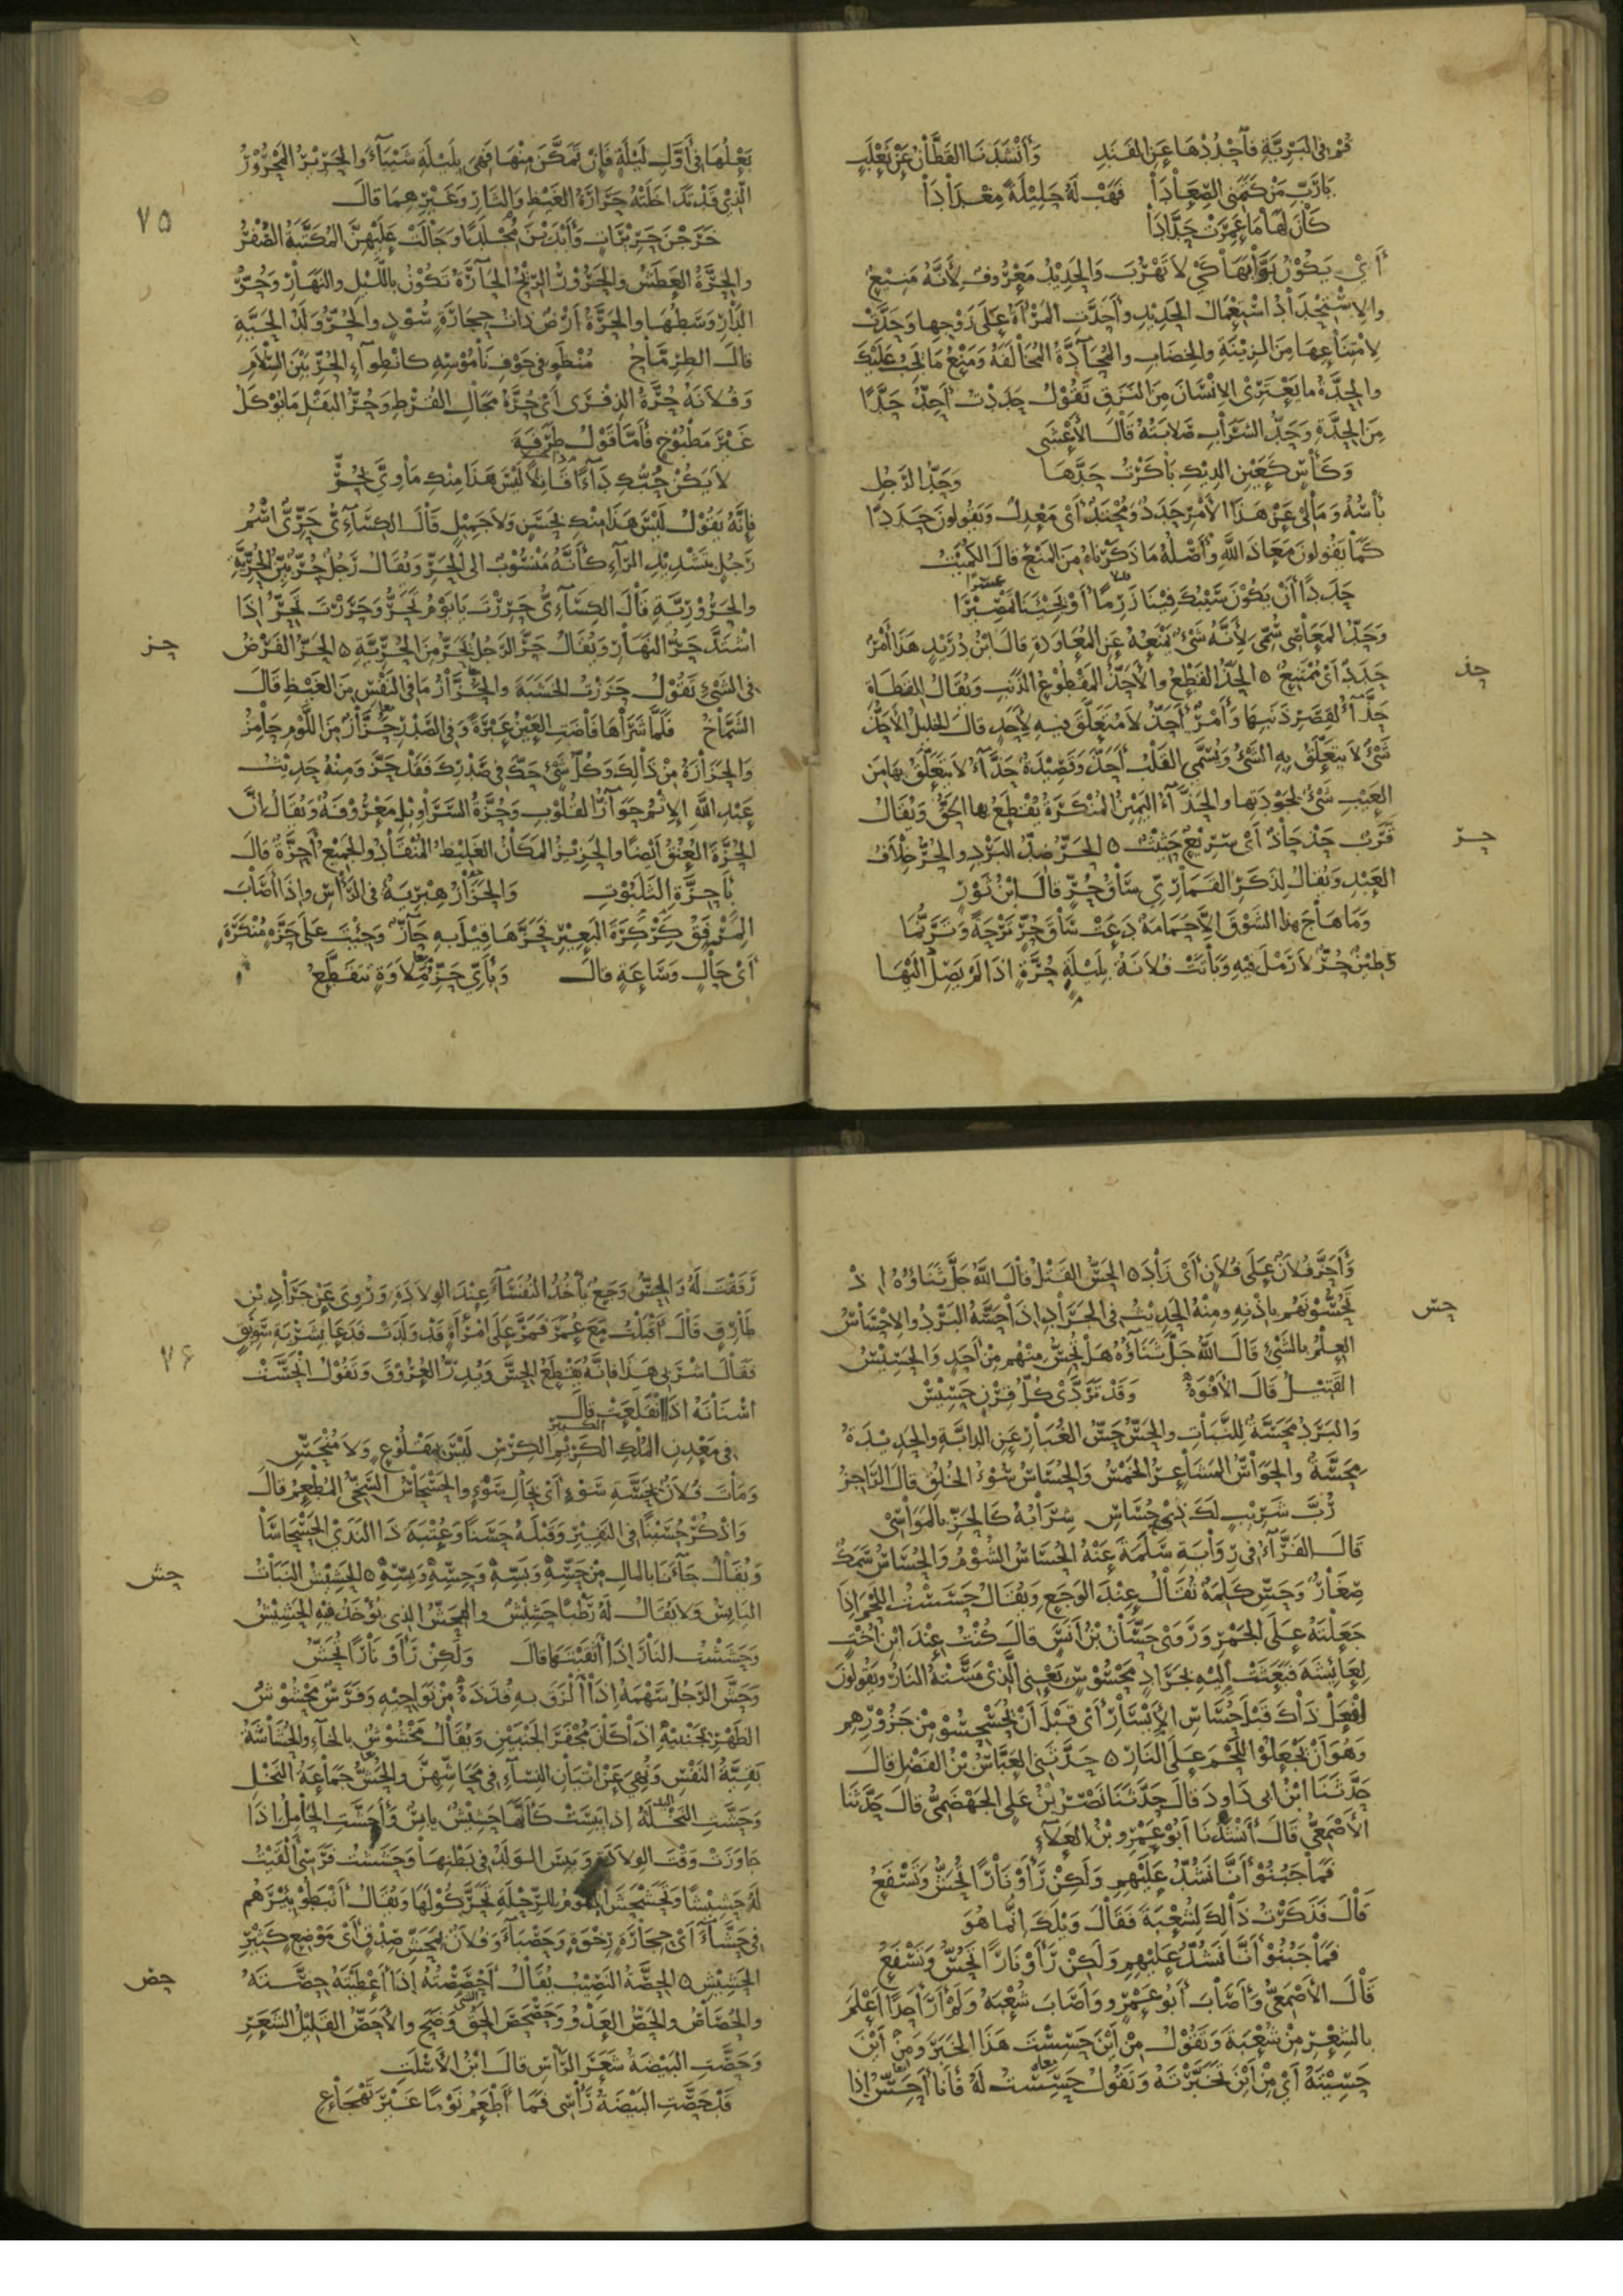 قُمْ فِي البَرِيَّةِ فَاحْدُدْهَا عَنِ الفَنَدِ وَأَنْشَدَنَا القَطَّانُ عَنْ ثَعْلَبٍ
يَا رَبِّ مَنْ كَتَمَنِي الصِّعَادَا فَهَبْ لَهُ حَلِيلَةً مِغْدَادَا
كَانَ لَهَا مَا عَمِرَتْ حَدَّادَا
أَيْ يَكُوْنُ بَوَّابَهَا كَيْ لَا تَهْرُبَ وَالحَدِيْدُ مَعْرُوفٌ لِأَنَّهُ مَنِيعٌ
والاِسْتِحْدَادُ اسْتِعْمَالُ الحَدِيدِ وأَحَدَّتِ المَرْأَةُ عَلَى زَوْجِها وَحَدَّتْ
لِامْتِنَاعِهَا مِنَ الزِيْنَةِ والخِضَابِ والمُحَادَّةُ المُخَالَفَةُ وَمَنْعُ مَا يَجِبُ عَلَيْكَ
والحِدَّةُ مَا يَعْتَرِي الاِنْسَانَ مِنَ النَزَقِ تَقُوْلُ حَدَدْتُ أَحِدُّ حَدًّا
مِنَ الحِدَّةِ وَحَدُّ الشَرَابِ صَلَابَتُهُ قَالَ الأَعْشَى
وَكَأْسٍ كَعَيْنِ الدِيْكِ بَاكَرْتُ حَدَّهَا وَحَدُّ الرَجُلِ
بَأْسُهُ وَمَا لِي عَنْ هَذَا الأَمْرِ حَدَدٌ وَمُحْتَدٌّ أَيْ مَعْدِلٌ وَيَقُولُونَ حَدَدًا
كَمَا يَقُولُونَ مَعَاذَ اللَّهِ وأَصْلُهُ مَا ذَكَرْنَاهُ مِنَ المَنْعِ قَالَ الكُمَيْتُ
حَدَدًا أَنْ يَكُوْنَ سَيْبُكَ فِيْنَا زَرِمًا أَوْ يَجِيْئَنَا تَمْصِيْرَا
وَحَدُّ المَعَاصِي سُمِّيَ لِأَنَّهُ شَيْءٌ يَمْنَعُهُ عَنِ المُعَاوَدَةِ قَالَ ابْنُ دُرَيْدٍ هَذَا أَمْرٌ
حذ
حَدَدٌ أَيْ مُمْتَنِعٌ ٥ الحَذُّ القَطْعُ والأَحَذُّ المَقْطُوعُ الذَنَبِ وَيُقَالُ لِلقَطَاةِ
حَذَّاءُ لِقِصَرِ ذَنَبِهَا وَأَمْرٌ أَحَذُّ لَا مُتَعَلَّقَ فِيهِ لِأَحَدٍ قَالَ الخَلِيلُ الأَحَذُّ
شَيْءٌ لَا يَتَعَلَّقُ بِهِ الشَيْءُ وَيُسَمَّى القَلْبُ أَحَذَّ وَقَصِيْدَةٌ حَذَّاءُ لَا يَتَعَلَّقُ بِهَا مِنَ
العَيْبِ شَيْءٌ لِجَوْدَتِها والحَذَّاءُ اليَمِيْنُ المُنْكَرَةُ يُقْطَعُ بِهَا الحَقُّ وَيُقَالُ
حر
قَرَبٌ حَذْحَاذٌ أَيْ سَرِيْعٌ حَثِيْثٌ ٥ الحَرُّ ضِدُّ البَرْدِ والحُرُّ خِلَافُ
العَبْدِ وَيُقَالُ لِذَكَرِ القَمَارِيِّ سَاقُ حُرٍّ قَالَ ابْنُ ثَوْرٍ
وَمَا هَاجَ هَذَا الشَوْقَ إِلَّا حَمَامَةٌ دَعَتْ سَاقَ حُرٍّ تَرْحَةً وَتَرَنُّمَا
وَطِيْنٌ حُرٌّ لَا رَمْلَ فِيْهِ وَبَاتَتْ فُلَانَةُ بِلَيْلَةِ حُرَّةٍ اذَا لَمْ يَصِلْ الَيْهَا
٧٥
بَعْلُهَا فِي أَوَّلِ لَيْلَةٍ فَإِنْ تَمَكَّنَ مِنْهَا فَهِيَ بِلَيْلَةِ شَيْبَاءَ والحَرِيْرُ المَحْرُوْرُ
الَّذِي قَدْ تَدَاخَلَتْهُ حَرَارَةُ الغَيْظِ والنَّارِ وَغَيْرِهِمَا قَالَ
خَرَجْنَ حَرِيْرَاتٍ وَأَبْدَيْنَ مِجْلَدًا وَجَالَتْ عَلَيْهِنَّ المُكَتَّبَةُ الصُّفْرُ
والحِرَّةُ العَطَشُ والحَرُوْرُ الرِيْحُ الحَارَّةُ تَكُوْنُ بِاللَّيْلِ والنَهَارِ وَحُرُّ
الدَّارِ وَسَطُهَا والحَرَّةُ أَرْضٌ ذَاتُ حِجَارَةٍ سُوْدٍ والحُرُّ وَلَدُ الحَيَّةِ
قَالَ الطِرِمَّاحُ مُنْطَوٍ فِي جَوْفِ نَامُوْسِهِ كَانْطِوَاءِ الحُرِّ بَيْنَ السِّلَامِ
وَفُلَانَةُ حُرَّةُ الذِفْرَى أَيْ حُرَّةُ مَجَالِ القُرْطِ وَحُرُّ البَقْلِ مَا يُؤْكَلُ
غَيْرَ مَطْبُوْخٍ فَأَمَّا قَوْلُ طَرَفَةَ
لَا يَكُنْ حُبُّكِ دَاءً قَاتِلًا لَيْسَ هَذَا مِنْكِ مَاوِيَّ بِحُرّْ
فَإِنَّهُ يَقُوْلُ لَيْسَ هَذَا مِنْكِ بِحَسَنٍ وَلَا جَمِيْلٍ قَالَ الكِسَائِيُّ حَرِّيٌّ اسْمُ
رَجُلٍ بِتَشْدِيْدِ الرَّاءِ كَأَنَّهُ مَنْسُوْبٌ الى الحَرِّ وَيُقَالُ رَجُلٌ حُرٌّ بَيِّنُ الحُرِّيَّةِ
والحَرُوْرِيَّةِ قَالَ الكِسَائِيُّ حَرِرْتَ يَا يَوْمُ تَحَرُّ وَحَرَرْتَ تَحِرُّ إِذَا
حز
اشْتَدَّ حَرُّ النَهَارِ وَيُقَالُ حَرَّ الرَجُلُ يَحَرُّ مِنَ الحُرِّيَّةِ ٥ الحَزُّ الفَرْضُ
فِي الشَيْءِ تَقُوْلُ حَزَزْتُ الخَشَبَةَ والحَزَّازُ مَا فِي النَفْسِ مِنَ الغَيْظِ قَالَ
الشَمَّاخُ فَلَمَّا شَرَاهَا فَاضَتِ العَيْنُ عَبْرَةً وَفِي الصَدْرِ حَزَّازٌ مِنَ اللَّوْمِ حَامِزُ
وَالحَزَازَةُ مِنْ ذَالِكَ وَكُلُّ شَيْءٍ حَكَّ فِي صَدْرِكَ فَقَدْ حَزَّ وَمِنْهُ حَدِيْثُ
عَبْدِ اللَّهِ الإِثْمُ حَوَازُّ القُلُوْبِ وَحُزَّةُ السَرَاوِيْلِ مَعْرُوْفَةٌ وَيُقَالُ إِنَّ
الحُزَّةَ العُنُقُ أَيْضًا والحَزِيْزُ المَكَانُ الغَلِيْظُ المُنْقَادُ والجَمِيْعُ أَحِزَّةٌ قَالَ
بِأَحِزَّةِ الثَلَبُوْتِ وَالحَزَازُ هِبْرِيَةٌ فِي الرَأْسِ وإِذَا أَصَابَ
المِرْفَقُ كِرْكِرَةَ البَعِيْرِ فَحَزَّهَا قِيْلَ بِهِ حَازٌّ وَجِئْتُ عَلَى حَزَّةٍ مُنْكَرَةٍ
أَيْ حَالٍ وَسَاعَةٍ قَالَ وَبِأَيِّ حَزِّ مَلَاوَةٍ تَتَقَطَّعُ
حس
وَأَحَزَّ فُلَانٌ عَلَى فُلَانٍ أَيْ زَادَ ٥ الحَسُّ القَتْلُ قَالَ اللَّهُ جَلَّ ثَنَاؤُهُ إِذْ
تَحُسُّوْنَهُمْ بِاذْنِهِ وَمِنْهُ الحَدِيْثُ فِي الجَرَادِ إِذَا حَسَّهُ البَرْدُ والاِحْسَاسُ
العِلْمُ بِالشَيْءِ قَالَ اللَّهُ جَلَّ ثَنَاؤُهُ هَلْ تُحِسُّ مِنْهُمْ مِنْ أَحَدٍ وَالحَسِيْسُ
القَتِيْلُ قَالَ الأَفْوَهُ وَقَدْ تَرَدَّى كُلُّ قِرْنٍ حَسِيْسْ
وَالبَرْدُ مَحَسَّةٌ لِلنَّبَاتِ والحَسُّ حَسُّ الغُبَارِ عَنِ الدَابَّةِ والحَدِيْدَةُ
مِحَسَّةٌ والحَوَاسُّ المَشَاعِرُ الخَمْسُ وَالحُسَاسُ سُوْءُ الخُلُقِ قَالَ الرَاجِزُ
رُبَّ شَرِيْبٍ لَكَ ذِيْ حُسَاسِ شِرَابُهُ كَالحَزِّ بِالمَوَاسِي
قَالَ الفَرَّاءُ فِي رِوَايَةِ سَلَمَةَ عَنْهُ الحُسَاسُ الشُؤْمُ وَالحُسَاسُ سَمَكٌ
صِغَارٌ وَحَسِّ كَلِمَةٌ تُقَالُ عِنْدَ الوَجَعِ وَيُقَالُ حَسْحَسْتُ اللَّحْمَ إِذَا
جَعَلْتَهُ عَلَى الجَمْرِ وَرَوَى حَسَّانُ بْنُ أَنَسٍ قَالَ كُنْتُ عِنْدَ ابْنِ أُخْتٍ
لِعَائِشَةَ فَبَعَثَتْ إِلَيْهِ بِجَرَادٍ مَحْسُوْسٍ يَعْنِي الَّذِي مَسَّتْهُ النَارُ وَيَقُولُونَ
افْعَلْ ذَاكَ قَبْلَ حُسَاسِ الأَيْسَارِ أَيْ قَبْلَ أَنْ يُحَسْحِسُوْا مِنْ جَزُوْرِهِمْ
وَهُوَ أَنْ يَجْعَلُوْا اللَّحْمَ عَلَى النَارِ ٥ حَدَّثَنِي العَبَّاسُ بْنُ الفَضْلِ قَالَ
حَدَّثَنَا ابْنُ ابِي دَاودَ قَالَ حَدَّثَنَا نَصْرُ بْنُ عَلِيٍّ الجَهْضَمِيُّ قَالَ حَدَّثَنَا
الأَصْمَعِيُّ قَالَ أَنْشَدَنَا أَبُو عَمْرِو بْنُ العَلَاءِ
فَمَا جَبُنُوْا أَنَّا نَشُدُّ عَلَيْهِمِ وَلَكِنْ رَأَوْا نَارًا تُحَسُّ وَتَسْفَعُ
قَالَ فَذَكَرْتُ ذَالِكَ لِشُعْبَةَ فَقَالَ وَيْلَكَ إِنَّمَا هُوَ
فَمَا جَبُنُوْا أَنَّا نَشُدُّ عَلَيْهِمِ وَلَكِنْ رَأَوْا نَارًا تُحَشُّ وَتَسْفَعُ
قَالَ الأَصْمَعِيُّ وَأَصَابَ أَبُو عَمْرٍو وَأَصَابَ شُعْبَةُ وَلَمْ أَرَ أَحَدًا أَعْلَمَ
بِالشِعْرِ مِنْ شُعْبَةَ وَتَقُوْلُ مِنْ أَيْنَ حَسِسْتَ هَذَا الخَبَرَ وَمِنْ أَيْنَ
حَسِيْتَهُ أَيْ مِنْ أَيْنَ تَخَبَّرْتَهُ وَتَقُوْلُ حَسِسْتُ لَهُ فَأَنَا أَحِسُّ إِذَا
٧٦
رَقَقْتَ لَهُ وَالحِسُّ وَجَعٌ يَأْخُذُ النُفَسَاءَ عِنْدَ الوِلَادَةِ وَرُوِيَ عَنْ جَرَادِ بْنِ
طَارِقٍ قَالَ أَقْبَلْتُ مَعَ عُمَرَ فَمَرَّ عَلَى امْرَأَةٍ قَدْ وَلَدَتْ فَدَعَا بِشَرْبَةِ سَوِيْقٍ
فَقَالَ اشْرَبِي هَذَا فَإِنَّهُ يَقْطَعُ الحِسَّ وَيُدِرُّ العُرُوْقَ وَتَقُوْلُ انْحَسَّتْ
اسْنَانُهُ اذَا انْقَلَعَتْ قَالَ
فِي مَعْدِنِ المُلْكِ الكَرِيْمِ الكِرْسِ لَيْسَ بِمَقْلُوْعٍ وَلَا مُنْحَسِّ
وَمَاتَ فُلَانٌ بِحَسَّةِ سَوْءٍ أَيْ بِحَالِ سَوْءٍ والحَسْحَاسُ السَخِيُّ المُطْعِمُ قَالَ
وَاذْكُرْ حُسَيْنًا فِي النَفِيْرِ وَقَبْلَهُ حَسَنًا وَعُتْبَةَ ذَا النَدَى الحَسْحَاسَا
حش
وَيُقَالُ جَاءَنَا بِالمَالِ مِنْ حَسِّهِ وَبَسِّهِ وَحِسِّهِ وَبِسِّهِ ٥ الحَشِيْشُ النَبَاتُ
اليَابِسُ وَلَا يُقَالُ لَهُ رَطْبًا حَشِيْشٌ والمِحَشُّ الذِي يُؤْخَذُ فِيْهِ الحَشِيْشُ
وَحَشَشْتُ النَارَ إِذَا أَثْقَبْتَهَا قَالَ وَلَكِنْ رَأَوْا نَارًا تُحَشُّ
وَحَشَّ الرَجُلُ سَهْمَهُ إِذَا أَلْزَقَ بِهِ قُذَذَهُ مِنْ نَوَاحِيْهِ وَفَرَسٌ مَحْشُوْشُ
الظَهْرِ بِجَنْبَيْهِ إِذَا كَانَ مُجْفَرَ الجَنْبَيْنِ وَيُقَالُ مَخْشُوْشٌ بِالخَاءِ والحُشَاشَةُ
بَقِيَّةُ النَفْسِ وَنُهِيَ عَنْ اتْيَانِ النِسَاءِ فِي مَحَاشِّهِنَّ والحُشُّ جَمَاعَةُ النَخْلِ
وَحَشَّتِ اليَدُ إِذَا يَبِسَتْ كَأَنَّهَا حَشِيْشٌ يَابِسٌ وَأَحَشَّتِ الحَامِلُ إِذَا
جَاوَزَتْ وَقْتَ الوِلَادَةِ وَيَبِسَ الوَلَدُ فِي بَطْنِهَا وَحَشَشْتُ فَرَسِي أَلْقَيْتُ
لَهُ حَشِيْشًا وَتَحَشْحَشَ القَوْمُ بِالرِحْلَةِ تَحَرَّكُوْا لَهَا وَيُقَالُ أَنْبَطَوْا بِئْرَهُمْ
فِي حَشَّاءَ أَيْ حِجَارَةٍ رِخْوَةٍ وَحَصْبَاءَ وَفُلَانٌ بِمَحَشِّ صِدْقٍ أَيْ مَوْضِعٍ كَثِيْرِ
حص
الحَشِيْشِ ٥ الحِصَّةُ النَصِيْبُ يُقَالُ أَحْصَصْتُهُ إِذَا أَعْطَيْتَهُ حِصَّتَهُ
والحُصَاصُ والحَصُّ العَدْوُ وَحَصْحَصَ الحَقُّ وَضَحَ والأَحَصُّ القَلِيْلُ الشَعَرِ
وَحَصَّتِ البَيْضَةُ شَعَرَ الرَأْسِ قَالَ ابْنُ الأَسْلَتِ
قَدْ حَصَّتِ البَيْضَةُ رَأْسِي فَمَا أَطْعَمُ نَوْمًا غَيْرَ تَهْجَاعِ